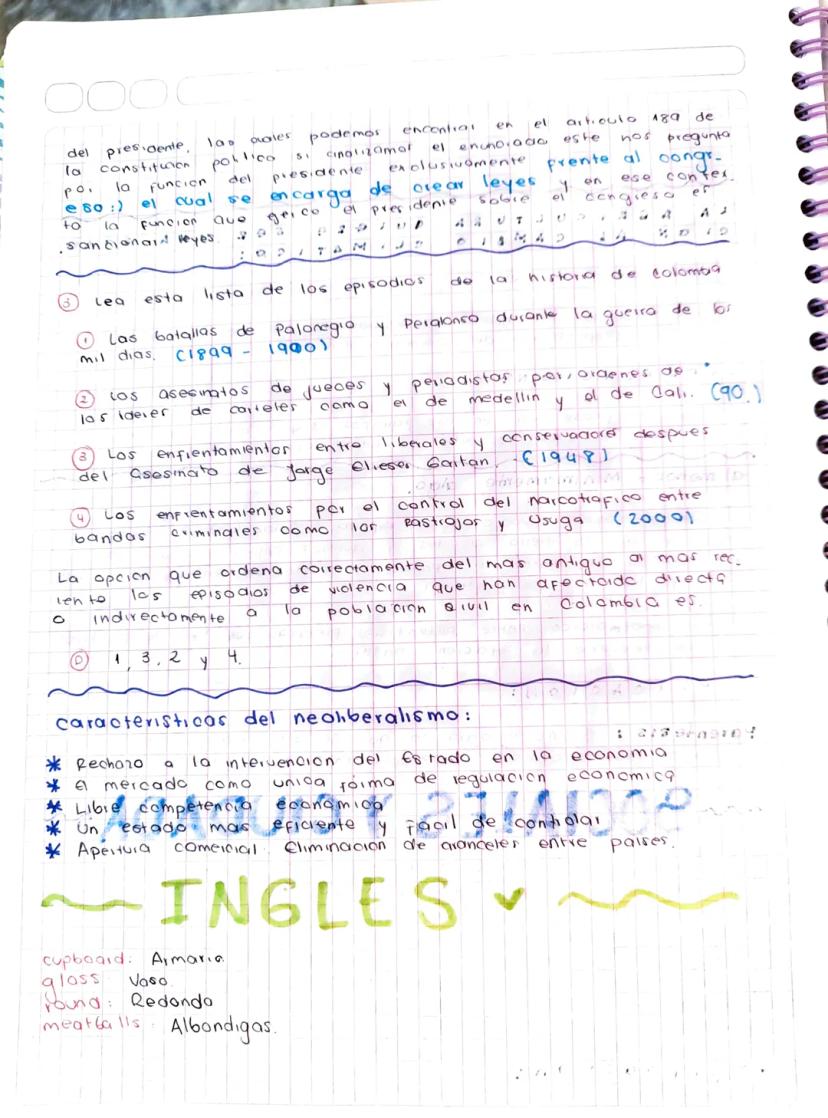 del presidente, las cuales podemos encontrar en el articulo 189 de
la constitucion politica si analizamos el enunciado este nos pregunta
por la funcion del presidente exclusivamente frente al congr-
eso:) el cual se encarga de crear leyes y en ese contex.
to la funcion que ejerce el presidente sobre el congreso es
.sancionar leyes.
③ Lea esta lista de los episodios de la historia de colombia
① Las batallas de Palonegro y Peralonso durante la guerra de los
mil dias. (1899 - 1900)
② Los asesinatos de jueces y periodistas por ordenes de
los lideres de carteles como el de medellin y el de Cali. (90.)
③ Los enfrentamientos entre liberales y conservadores despues
del asesinato de Jorge Elieser Gaitan. (1948)
④ Los enfrentamientos por el control del narcotrafico entre
bandas criminales como los Rastrojos y Usuga (2000)
La opcion que ordena correctamente del mas antiguo al mas rec.
iento los episodios de violencia que han afectado directa
o indirectamente a la poblacion civil en Colombia es.
Ⓓ 1, 3, 2 y 4.
caracteristicas del neoliberalismo:
* Rechazo a la intervencion del Estado en la economia
* El mercado como unica forma de regulacion economica
* Libre competencia economica
* Un estado mas eficiente y facil de controlar
* Apertura comercial. Eliminacion de aranceles entre paises.
INGLES
cupboard: Armario
glass: Vaso
round: Redondo
meatballs: Albondigas.